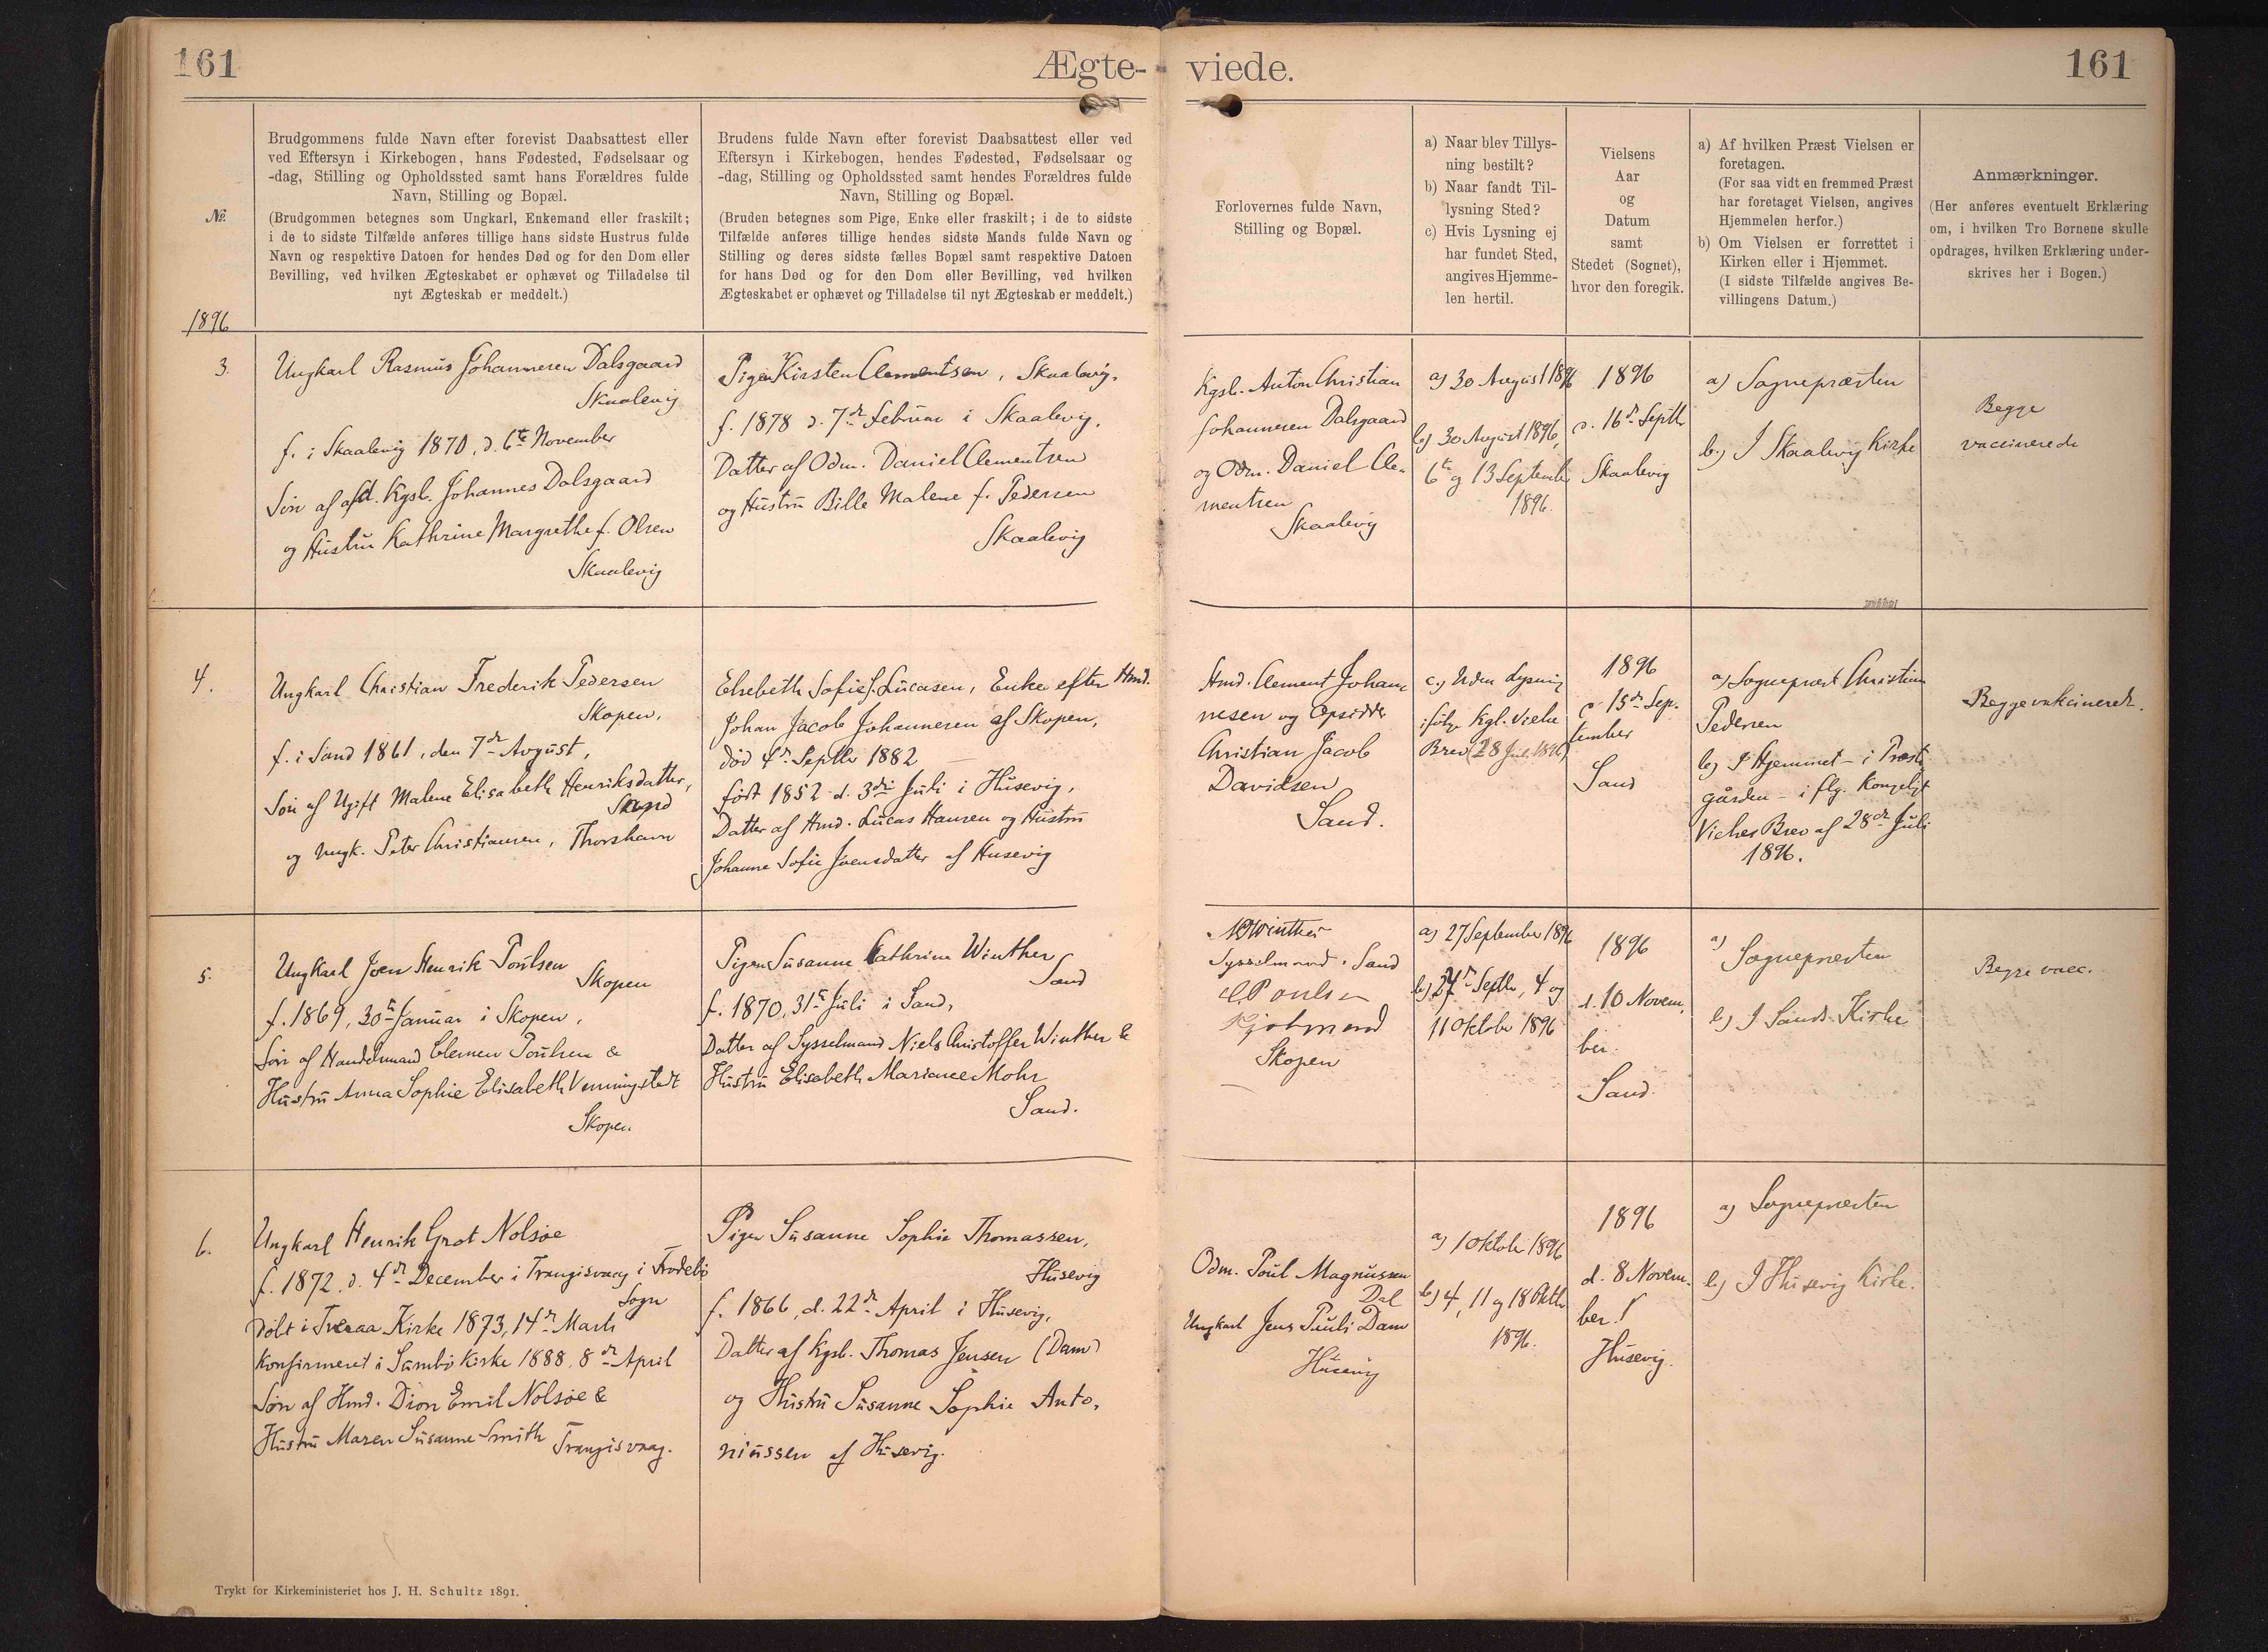 161
Ægte-
viede.
161
№.
Brudgommens fulde Navn efter forevist Daabsattest eller
ved Eftersyn i Kirkebogen, hans Fødested, Fødselsaar og
-dag, Stilling og Opholdssted samt hans Forældres fulde
Navn, Stilling og Bopæl.
(Brudgommen betegnes som Ungkarl, Enkemand eller fraskilt;
i de to sidste Tilfælde anføres tillige hans sidste Hustrus fulde
Navn og respektive Datoen for hendes Død og for den Dom eller
Bevilling, ved hvilken Ægteskabet er ophævet og Tilladelse til
nyt Ægteskab er meddelt.)
Brudens fulde Navn efter forevist Daabsattest eller ved
Eftersyn i Kirkebogen, hendes Fødested, Fødselsaar og
-dag, Stilling og Opholdssted samt hendes Forældres fulde
Navn, Stilling og Bopæl.
(Bruden betegnes som Pige, Enke eller fraskilt; i de to sidste
Tilfælde anføres tillige hendes sidste Mands fulde Navn og
Stilling og deres sidste fælles Bopæl samt respektive Datoen
for hans Død og for den Dom eller Bevilling, ved hvilken
Ægteskabet er ophævet og Tilladelse til nyt Ægteskab er meddelt.)
Forlovernes fulde Navn,
Stilling og Bopæl.
a) Naar blev Tillys-
ning bestilt?
b) Naar fandt Til-
lysning Sted?
c) Hvis Lysning ej
har fundet Sted,
angives Hjemme-
len hertil.
Vielsens
Aar
og
Datum
samt
Stedet (Sognet),
hvor den foregik.
a) Af hvilken Præst Vielsen er
foretagen.
(For saa vidt en fremmed Præst
har foretaget Vielsen, angives
Hjemmelen herfor.)
b) Om Vielsen er forrettet i
Kirken eller i Hjemmet.
(I sidste Tilfælde angives Be-
villingens Datum.)
Anmærkninger.
(Her anføres eventuelt Erklæring
om, i hvilken Tro Børnene skulle
opdrages, hvilken Erklæring under-
skrives her i Bogen.)
1896
3.
Ungkarl Rasmus Johannesen Dalsgaard
Skaalevig
f. i Skaalevig 1870, d. 6te November
Søn af afd. Kgsb. Johannes Dalsgaard
og Hustru Kathrine Margrethe f. Olsen
Skaalevig
Pigen Kirsten Clementsen, Skaalevig,
f. 1878 d. 7de Februar i Skaalevig,
Datter af Odm. Daniel Clementsen
og Hustru Bille Malene f. Pedersen
Skaalevig
Kgsb. Anton Christian
Johannesen Dalsgaard
og Odm. Daniel Cle-
mentsen
Skaalevig
a) 30 August 1896
b) 30 August 1896,
6te og 13 September
1896.
1896
d. 16de Septbr
Skaalevig
a) Sognepræsten
b.) I Skaalevig Kirke
Begge
vaccinerede
4.
Ungkarl Christian Frederik Pedersen
Skopen,
f. i Sand 1861, den 7de August,
Søn af Ugift Malene Elisabeth Henriksdatter,
Sand
og Ungk. Peter Christiansen, Thorshavn
Elsebeth Sofie f. Lucasen, Enke efter Hmd.
Johan Jacob Johannesen af Skopen,
død 4de Septbr 1882
født 1852 d. 3die Juli i Husevig,
Datter af Hmd. Lucas Hansen og Hustru
Johanne Sofie Joensdatter af Husevig
Hmd. Clement Johan-
nesen og Opsidder
Christian Jacob
Davidsen
Sand.
c.) Uden Lysning
ifølge Kgl. Vielse
Brev (28 Juli 1896)
1896
d 15de Sep-
tember
Sand
a) Sognepræst Christian
Pedersen
b) I Hjemmet - i Præste
gården - i flg. Kongeligt
Vielses Brev af 28de Juli
1896.
Begge vakcinerede.
5.
Ungkarl Joen Henrik Poulsen
Skopen
f. 1869, 30te Januar i Skopen,
Søn af Handelsmand Clemen Poulsen &
Hustru Anna Sophie Elisabeth Venningstedt
Skopen
Pigen Susanne Cathrine Winther
Sand
f. 1870, 31te Juli i Sand,
Datter af Sysselmand Niels Christoffer Winther &
Hustru Elisabeth Mariane Mohr
Sand.
Winther
Sysselmand. Sand
Poulsen
Kjøbmand
Skopen
a) 27 September 1896
b) 27de Septbr, 4 og
11 Oktober 1896
1896
d. 10 Novem,
ber.
Sand.
a) Sognepræsten
b) I Sands Kirke
Begge vacc.
6.
Ungkarl Henrik Grot Nolsøe
f. 1872, d. 4de December i Trangisvaag i Frodebø
Sogn
Døbt i Tveraa Kirke 1873, 14de Marts
Konfirmeret i Sumbø Kirke 1888, 8de April
Søn af Hmd. Dion Emil Nolsøe &
Hustru Maren Susanne Smith Trangisvaag.
Pigen Susanne Sophie Thomassen,
Husevig
f. 1866, d. 22de April i Husevig,
Datter af Kgsb. Thomas Jensen (Dam)
og Hustru Susanne Sophie Anto-
niussen af Husevig.
Odm. Poul Magnussen
Dal
Ungkarl Jens Pauli Dam
Husevig
a) 1 Oktober 1896
b) 4, 11 og 18 Oktbr
1896.
1896
d. 8 Novem-
ber.
Husevig.
a) Sognepræsten
b) I Husevig Kirke.
Trykt for Kirkeministeriet hos J. H. Schultz 1891.